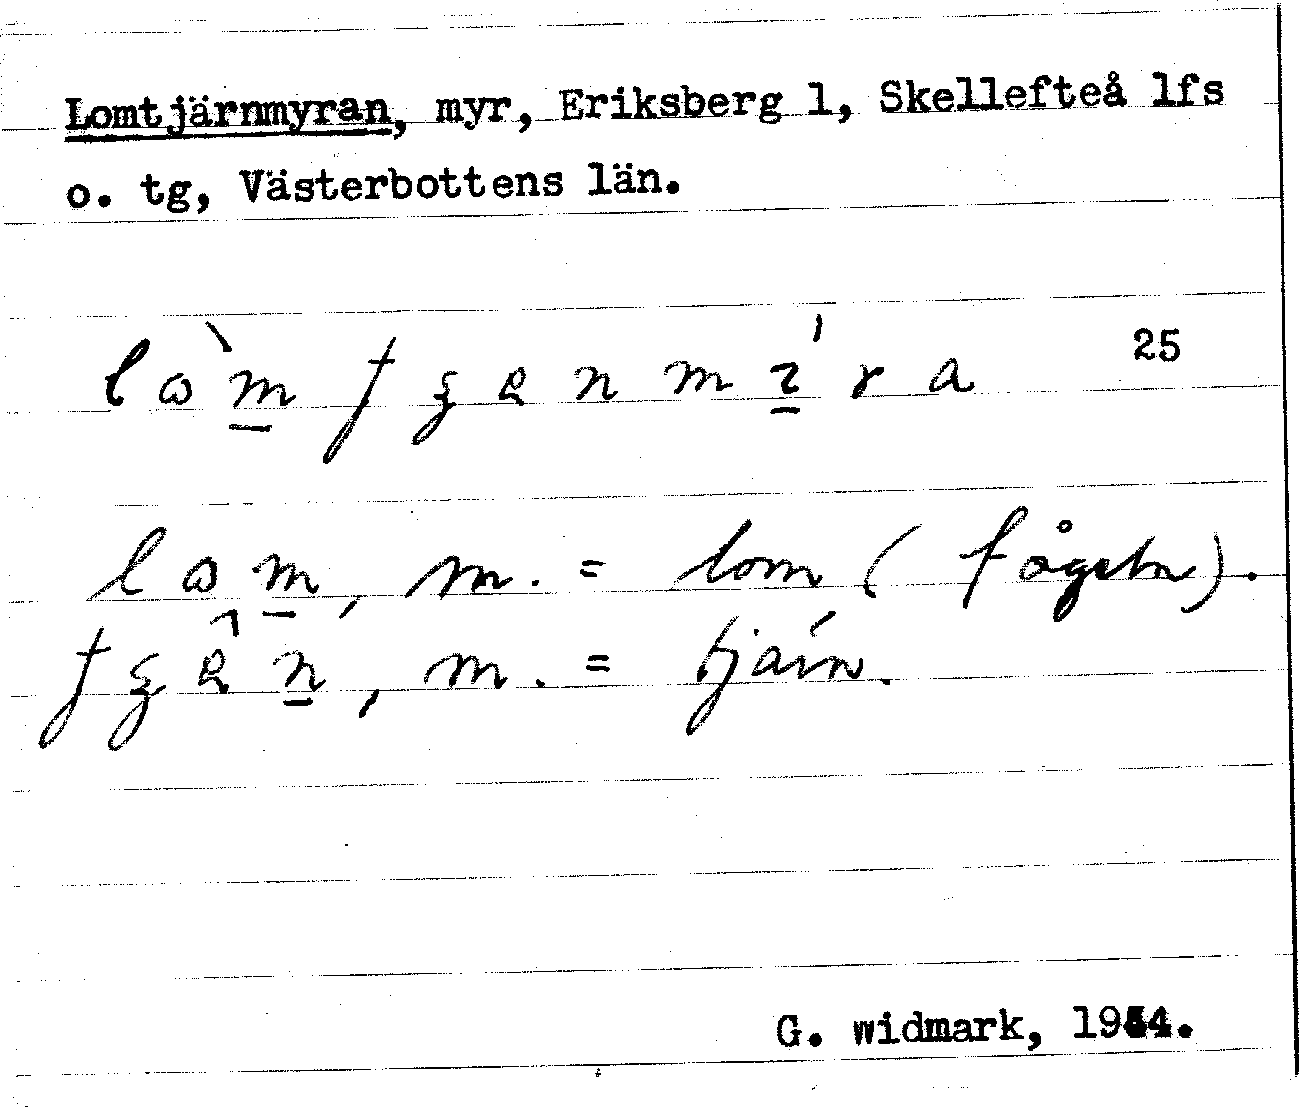 Lomtjärnmyran, myr, Eriksberg 1, Skellefteå lfs
o. tg, Västerbottens län.
25
m. = lom (fågeln).
m. = tjärn.
G. widmark, 1954.